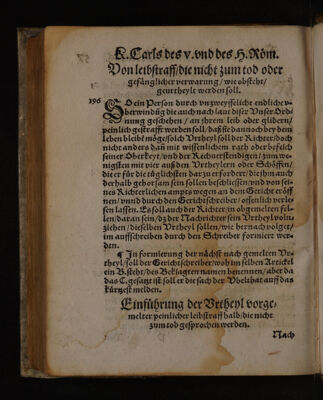 K. Carls des v. vnd des H. Röm.
Von leibstraff/ die nicht zum tod oder
gefängklicher verwarung/ wie obsteht/
geurtheylt werden soll.
196
SO ein Person durch vnzweyffeliche endliche v-
berwindūg die auch nach laut diser Vnser Ord-
nung geschehen/ an jhrem leib oder glidern/
peinlich gestrafft werden soll/ daß sie dannoch bey dem
leben bleibē möge solch Vrtheyl soll der Richter/ doch
nicht anders dañ mit wissenlichem rath oder befelch
seiner Oberkeyt/ vnd der Rechuerstendigen/ zum we-
nigsten mit vier auß den Vrtheylern oder Schöffen/
die er für die tüglichsten darzu erfordert/ die jhm auch
derhalb gehorsam sein sollen beschliessen/ vnd von sei-
nes Richterlichen ampts wegen an dem Gericht eröff
nen/ vnnd durch den Gerichtschreiber/ offenlich verle-
sen lassen. Es soll auch der Richter/ in obgemelten fel-
len/ daran sein/ dz der Nachrichter sein Vrtheyl voln-
ziehen/ dieselben Vrtheyl sollen/ wie hernach volget/
im auffschreiben durch den Schreiber formiert wer-
den.
¶ In formierung der nächst nach gemelten Vr-
theyl/ soll der Gerichtschreiber/ wo im selben Artickel
ein B. steht/ des Beklagten namen benennen/ aber da
das C. gesatzt ist soll er die sach der Vbelthat auff das
kürtzest melden.
Einführung der Vrtheyl vorge-
melter peinlicher leibstraff halb/ die nicht
zum tod gesprochen werden.
Nach